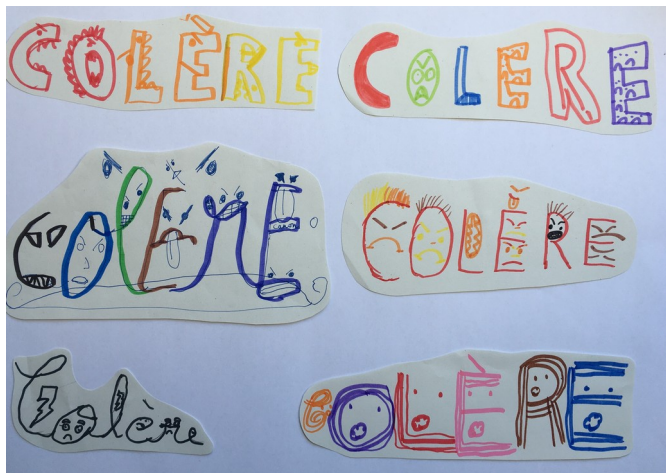 COLÈRE
COLERE
COLERE
COLÉRE
Colère
COLÉRE